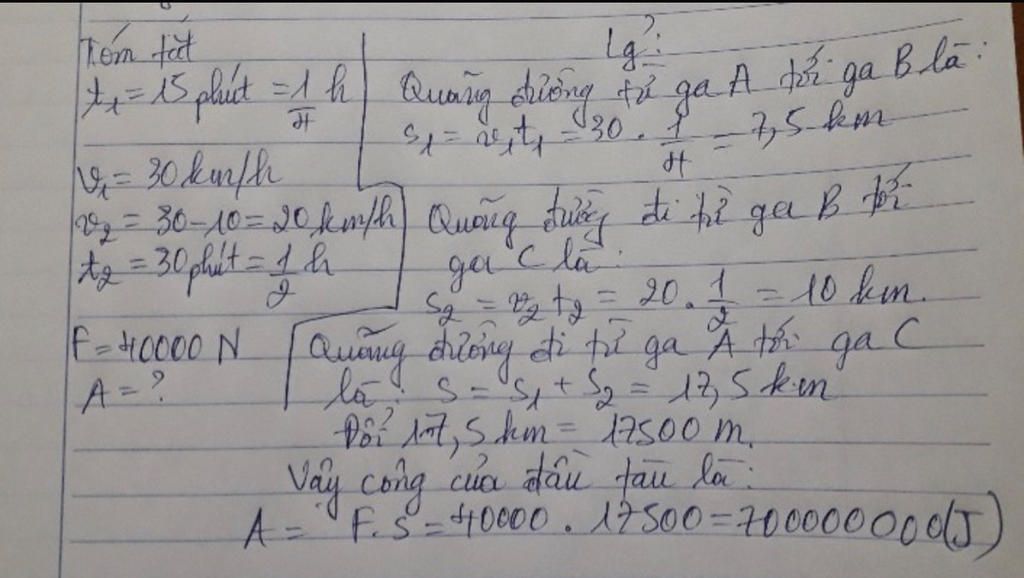 Tóm tắt
t₁ = 15 phút = 1/4 h
v₁ = 30 km/h
v₂ = 30 - 10 = 20 km/h
t₂ = 30 phút = 1/2 h
F = 40000 N
A = ?
Lg?:
Quãng đường từ ga A tới ga B là:
s₁ = v₁t₁ = 30 . 1/4 = 7,5 km
Quãng đường đi từ ga B tới
ga C là:
s₂ = v₂ t₂ = 20 . 1/2 = 10 km.
Quãng đường đi từ ga A tới ga C
là: s = s₁ + s₂ = 17,5 km
Đổi 17,5 km = 17500 m.
Vậy công của đầu tàu là:
A = F. s = 40000 . 17500 = 700000000 (J)